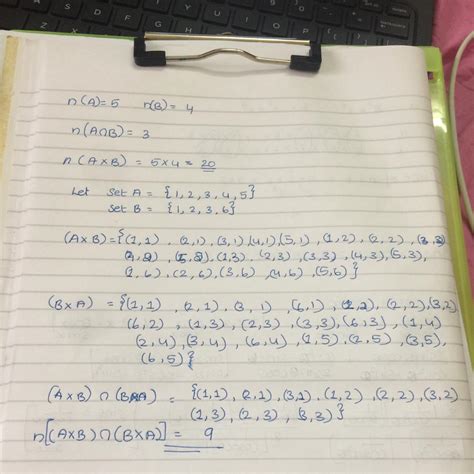 n(A)=5 n(B)= 4
n(A∩B) = 3
n(A×B) = 5×4 = 20
Let Set A = {1,2,3,4,5}
Set B = {1,2,3,6}
(A×B)={(1,1),(2,1),(3,1)(4,1)(5,1),(1,2),(2,2),(3,2)
(4,2),(5,2),(1,3),(2,3),(3,3),(4,3),(5,3),
(1,6),(2,6),(3,6),(4,6),(5,6)}
(B×A) = {(1,1),(2,1),(3,1),(6,1),(1,2),(2,2),(3,2)
(6,2),(1,3),(2,3),(3,3),(6,3),(1,4)
(2,4),(3,4),(6,4),(1,5),(2,5),(3,5),
(6,5)}
(A×B)∩(B×A) = {(1,1),(2,1),(3,1),(1,2),(2,2),(3,2)
(1,3),(2,3),(3,3)}
n[(A×B)∩(B×A)] = 9